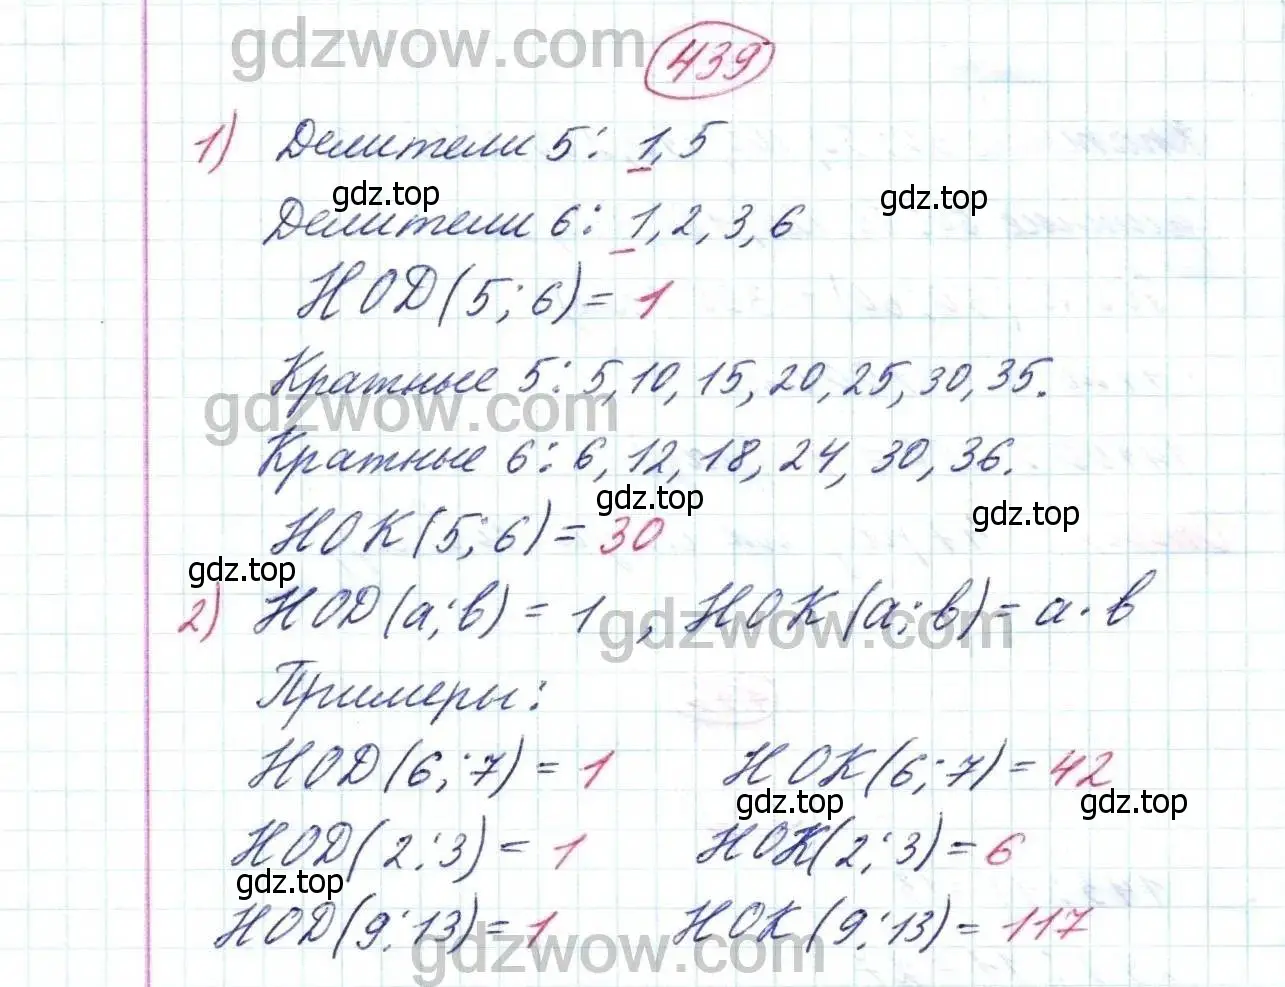 gdzwow.com
439
1) Делители 5: 1, 5
gdz.top gdz.top
Делители 6: 1, 2, 3, 6
НОД(5; 6) = 1
Кратные 5: 5, 10, 15, 20, 25, 30, 35.
gdzwow.com
Кратные 6: 6, 12, 18, 24, 30, 36.
gdz.top gdz.top
НОК(5; 6) = 30
gdz.top
2) НОД(а; в) = 1, НОК(а; в) = а · в
gdzwow.com
Примеры:
НОД(6; 7) = 1 НОК(6; 7) = 42
gdz.top gdz.top
НОД(2; 3) = 1 НОК(2; 3) = 6
gdz.top
НОД(9; 13) = 1 НОК(9; 13) = 117
gdzwow.com